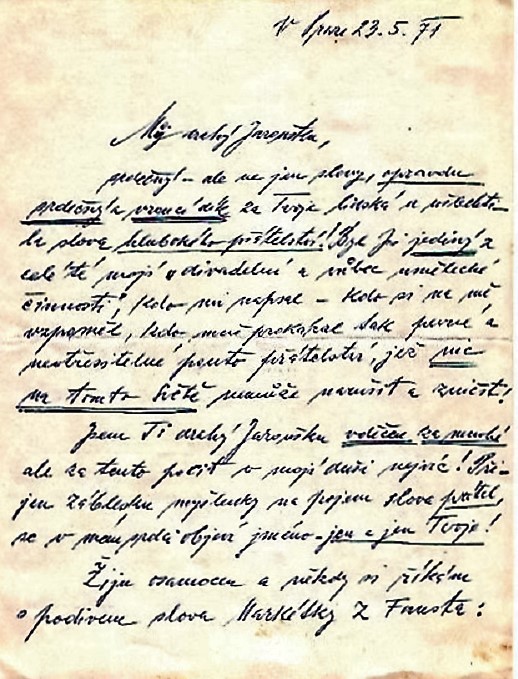 V Praze 23. 5. 71
Můj drahý Jaroušku,
srdečný – ale ne jen slovy, opravdu
srdečný a vroucí dík za Tvoje lidská a ušlechti-
lá slova hlubokého přátelství! Byl jsi jediný z
celé té mojí divadelní a vůbec umělecké
činnosti, kdo mi napsal – kdo si na mě
vzpomněl, kdo mně prokázal tak pevné a
neotřesitelné pouto přátelství, jež nic
na tomto světě nemůže narušit a zničit!
Jsem Ti drahý Jaroušku vděčen za mnohé
ale za tento pocit v mojí duši nejvíc! Při
jen záblesku myšlenky na pojem slova přítel,
se v mém srdci objeví jméno – jen a jen Tvoje!
Žiju osamocen a někdy si říkám
s podivem slova Markétky z Fausta: